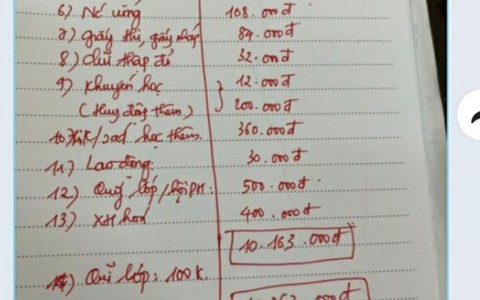 6.) Nước uống 108.000đ
7.) giấy thi, giấy nháp 84.000đ
8.) chữ thập đỏ 32.000đ
9.) Khuyến học 12.000đ
(Huy động thêm) 200.000đ
học thêm 360.000đ
11.) Lao động: 30.000đ
12) Quỹ lớp/hội PH: 500.000đ
13) XH hoá 400.000đ
10.163.000đ
14) Quĩ lớp: 100K.
263.000đ